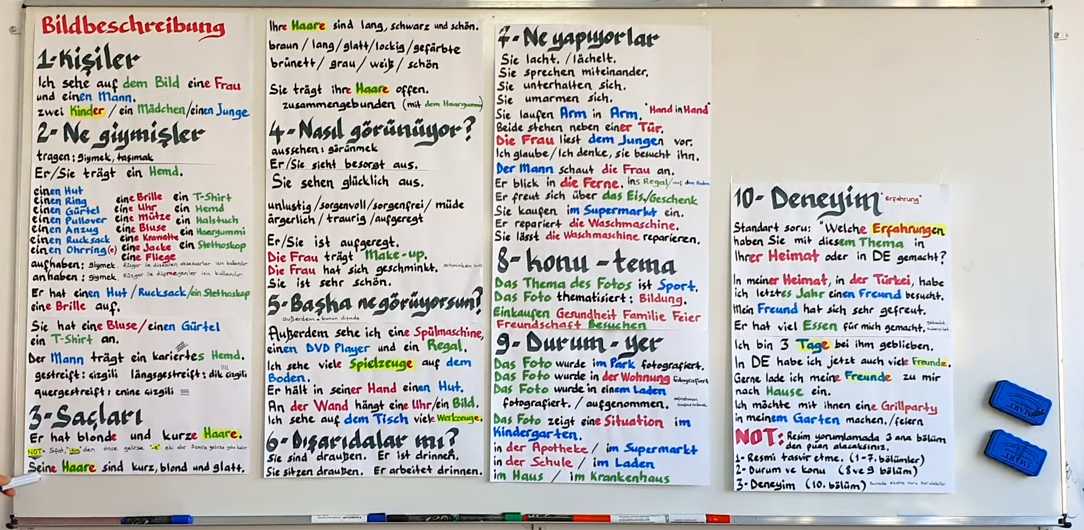 Bildbeschreibung
1-Kişiler
Ich sehe auf dem Bild eine Frau
und einen Mann.
zwei Kinder / ein Mädchen/einen Junge
2- Ne giymişler
tragen: giymek, taşımak
Er/Sie trägt ein Hemd.
einen Hut
einen Ring
einen Gürtel
einen Pullover
einen Anzug
einen Rucksack
einen Ohrring(e)
eine Brille
eine Uhr
eine mütze
eine Bluse
eine Kravatte
eine Jacke
eine Fliege
ein T-Shirt
ein Hemd
ein Halstuch
ein Haargummi
ein Stethoskop
aufhaben: giymek.
anhaben: giymek.
Er hat einen Hut / Rucksack / ein Stethoskop
eine Brille auf.
Sie hat eine Bluse/einen Gürtel
ein T-Shirt an.
Der Mann trägt ein kariertes Hemd.
gestreift: çizgili längsgestreift: dik çizgili
quergestreift: çizgili
3-Saçları
Er hat blonde und kurze Haare.
NOT:
Seine Haare sind kurz, blond und glatt.
Ihre Haare sind lang, schwarz und schön.
braun / lang / glatt / lockig / gefärbte
brünett / grau / weiß / schön
Sie trägt ihre Haare offen.
zusammengebunden (mit dem Haargummi)
4-Nasıl görünüyor?
aussehen: görünmek
Er/Sie sieht besorgt aus.
Sie sehen glücklich aus.
unlustig /sorgenvoll /sorgenfrei / müde
ärgerlich / traurig /aufgeregt
Er/Sie ist aufgeregt.
Die Frau trägt Make-up.
Die Frau hat sich geschminkt.
Sie ist sehr schön.
5-Başka ne görüyorsun?
Außerdem sehe ich eine Spülmaschine,
einen DVD Player und ein Regal.
Ich sehe viele Spielzeuge auf dem
Boden.
Er hält in seiner Hand einen Hut.
An der Wand hängt eine Uhr/ein Bild.
Ich sehe auf dem Tisch viele Werkzeuge.
6- Dışarıdalar mı?
Sie sind draußen. Er ist drinnen.
Sie sitzen draußen. Er arbeitet drinnen.
7- Ne yapıyorlar
Sie lacht. / lächelt.
Sie sprechen miteinander.
Sie unterhalten sich.
Sie umarmen sich.
Sie laufen Arm in Arm. "Hand in Hand"
Beide stehen neben einer Tür.
Die Frau liest dem Jungen vor.
Ich glaube/Ich denke, sie besucht ihn.
Der Mann schaut die Frau an.
Er blick in die Ferne. ins Regal/
Er freut sich über das Eis/Geschenk
Sie kaufen im Supermarkt ein.
Er repariert die Waschmaschine.
Sie lässt die Waschmaschine reparieren.
8- konu - tema
Das Thema des Fotos ist Sport.
Das Foto thematisiert: Bildung.
Einkaufen Gesundheit Familie Feier
Freundschaft Besuchen
9- Durum - yer
Das Foto wurde im Park fotografiert.
Das Foto wurde in der Wohnung fotografiert
Das Foto wurde in einem Laden
fotografiert. / aufgenommen.
Das Foto zeigt eine Situation im
Kindergarten.
in der Apotheke / im Supermarkt
in der Schule / im Laden
im Haus / im Krankenhaus
10- Deneyim "erfahrung"
Standart soru: "Welche Erfahrungen
haben Sie mit diesem Thema in
Ihrer Heimat oder in DE gemacht?
In meiner Heimat, in der Türkei, habe
ich letztes Jahr einen Freund besucht.
Mein Freund hat sich sehr gefreut.
Er hat viel Essen für mich gemacht.
Ich bin 3 Tage bei ihm geblieben.
In DE habe ich jetzt auch viele Freunde.
Gerne lade ich meine Freunde zu mir
nach Hause ein.
Ich möchte mit ihnen eine Grillparty
in meinem Garten machen./feiern
NOT: Resim yorumlamada 3 ana bölüm
den puan alacaksınız.
1- Resmi tasvir etme. (1-7. bölümler)
2- Durum ve konu (8 ve 9 bölüm)
3- Deneyim (10. bölüm)